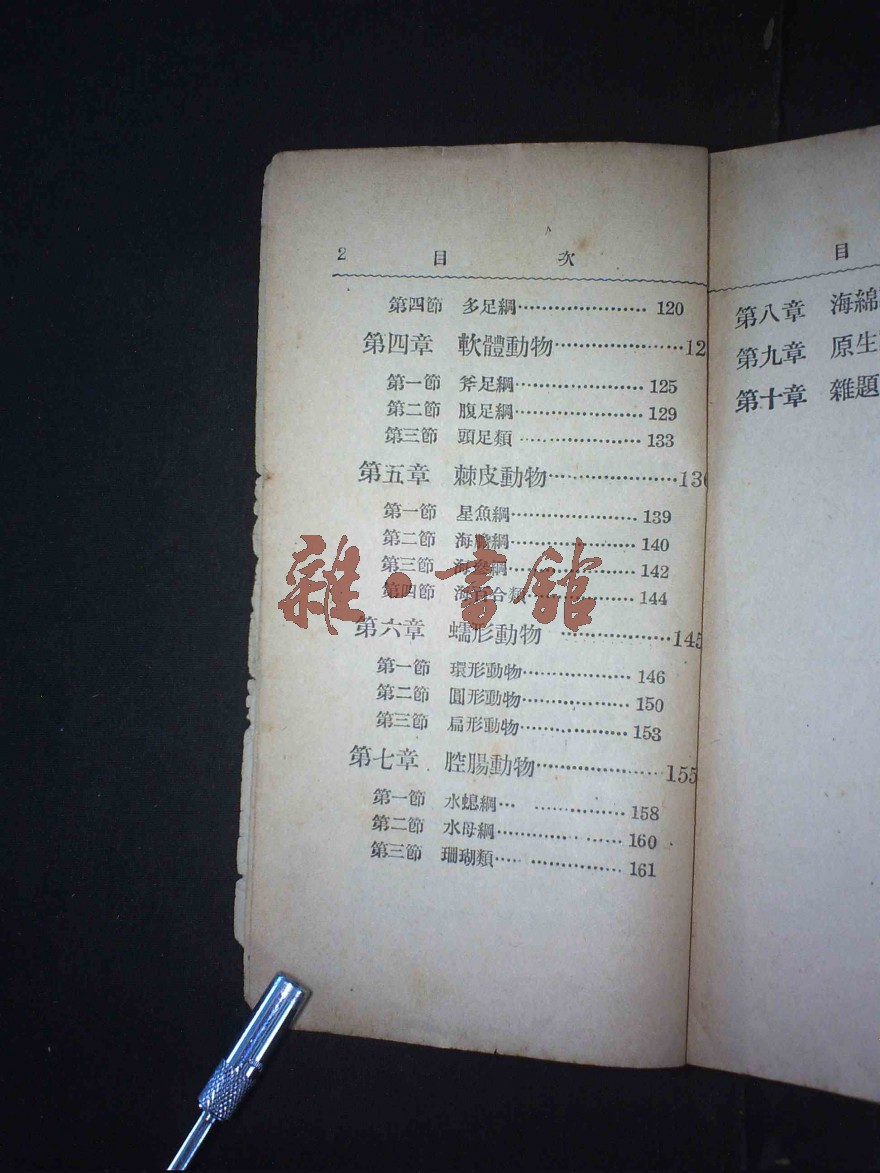 2 目 次
第四節 多足綱………………… 120
第四章 軟體動物…………………12
第一節 斧足綱………………… 125
第二節 腹足綱………………… 129
第三節 頭足類 ………………… 133
第五章 棘皮動物…………………136
第一節 星魚綱………………… 139
第二節 海膽綱………………… 140
第三節 海參綱………………… 142
第四節 海百合類……………… 144
第六章 蠕形動物 ………………145
第一節 環形動物……………… 146
第二節 圓形動物……………… 150
第三節 扁形動物……………… 153
第七章 腔腸動物…………………155
第一節 水螅綱… …………… 158
第二節 水母綱………………… 160
第三節 珊瑚類…… …………… 161
目
第八章 海綿
第九章 原生
第十章 雜題
雜·書館